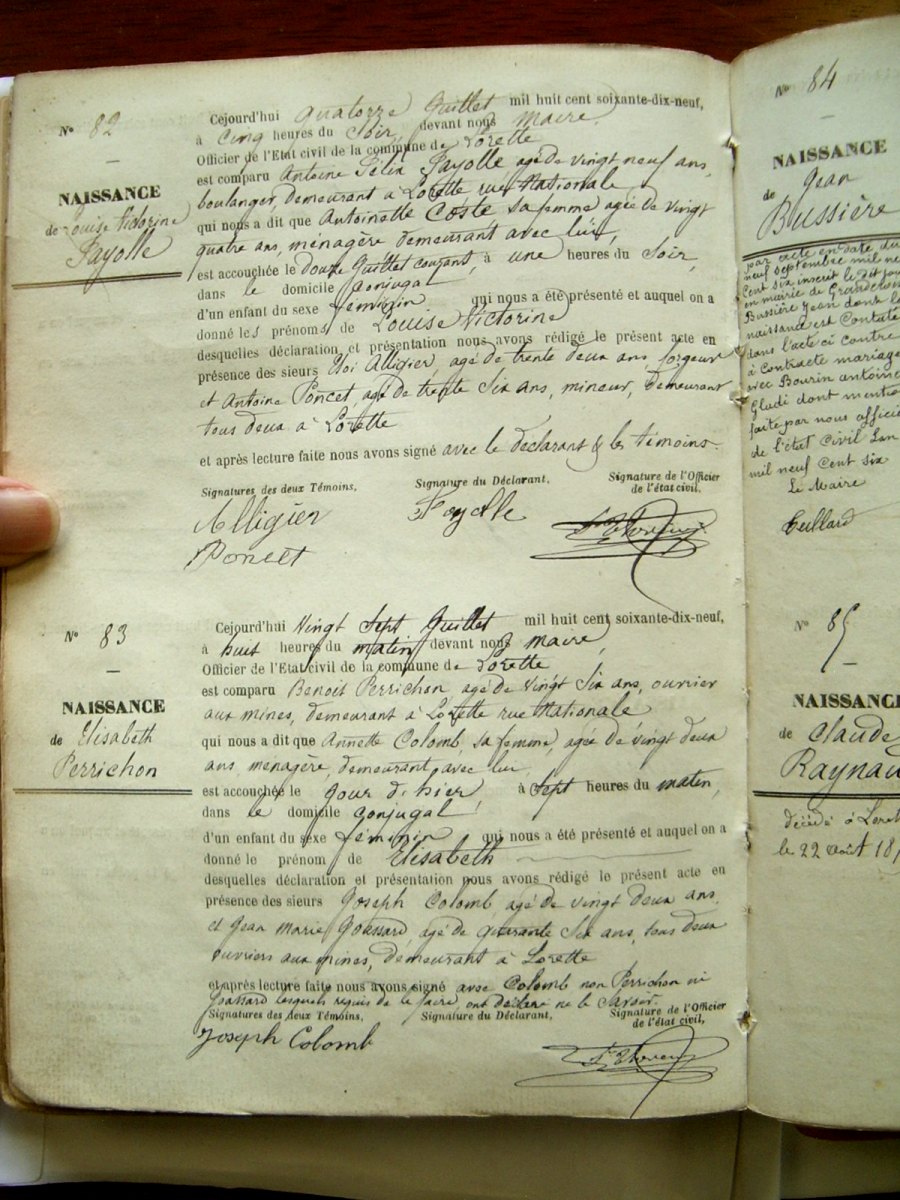 N° 82
NAISSANCE
de Louise Victorine
Fayolle
Cejourd'hui quatorze Juillet mil huit cent soixante-dix-neuf,
à cinq heures du soir, devant nous Maire
Officier de l'Etat civil de la commune de Lorette
est comparu Antoine Félix Fayolle agé de vingt neuf ans,
boulanger, demeurant à Lorette rue Nationale
qui nous a dit que Antoinette Coste sa femme agée de vingt
quatre ans, ménagère demeurant avec lui,
est accouchée le douze Juillet courant, à une heures du soir,
dans le domicile conjugal
d'un enfant du sexe féminin qui nous a été présenté et auquel on a
donné les prénoms de Louise Victorine
desquelles déclaration et présentation nous avons rédigé le présent acte en
présence des sieurs Eloi Alligier, agé de trente deux ans, forgeur
et Antoine Poncet, agé de trente six ans, mineur, demeurant
tous deux à Lorette
et après lecture faite nous avons signé avec le déclarant & les témoins.
Signatures des deux Témoins, Signature du Déclarant, Signature de l'Officier
de l'état civil,
Alligier Fayolle
Poncet
N° 83
NAISSANCE
de Elisabeth
Perrichon
Cejourd'hui Vingt Sept Juillet mil huit cent soixante-dix-neuf,
à huit heures du matin devant nous Maire,
Officier de l'Etat civil de la commune de Lorette
est comparu Benoit Perrichon agé de vingt six ans, ouvrier
aux mines, demeurant à Lorette rue Nationale
qui nous a dit que Annette Colomb, sa femme, agée de vingt deux
ans ménagère, demeurant avec lui
est accouchée le jour d'hier à sept heures du matin,
dans le domicile conjugal
d'un enfant du sexe féminin qui nous a été présenté et auquel on a
donné le prénom de Elisabeth
desquelles déclaration et présentation nous avons rédigé le présent acte en
présence des sieurs Joseph Colomb agé de vingt deux ans
et Jean Marie Goussard, agé de quarante six ans, tous deux
ouvriers aux mines, demeurant à Lorette
et après lecture faite nous avons signé avec Colomb non Perrichon ni
Goussard lesquels requis de le faire ont déclaré ne le savoir.
Signatures des deux Témoins, Signature du Déclarant, Signature de l'Officier
de l'état civil,
Joseph Colomb
N° 84
NAISSANCE
de Jean
Bussière
par acte en date du
neuf septembre mil ne
cent six inscrit le dit jour
en mairie de
Bussière Jean dont la
naissance est constatée
dans l'acte ci contre
à contracté mariage
avec Bourin antoine
Gladi dont mention
faite par nous officie
de l'état Civil l'an
mil neuf cent six
Le Maire
N° 85
NAISSANCE
de Claude
Raynau
décédé à Loret
le 22 août 18